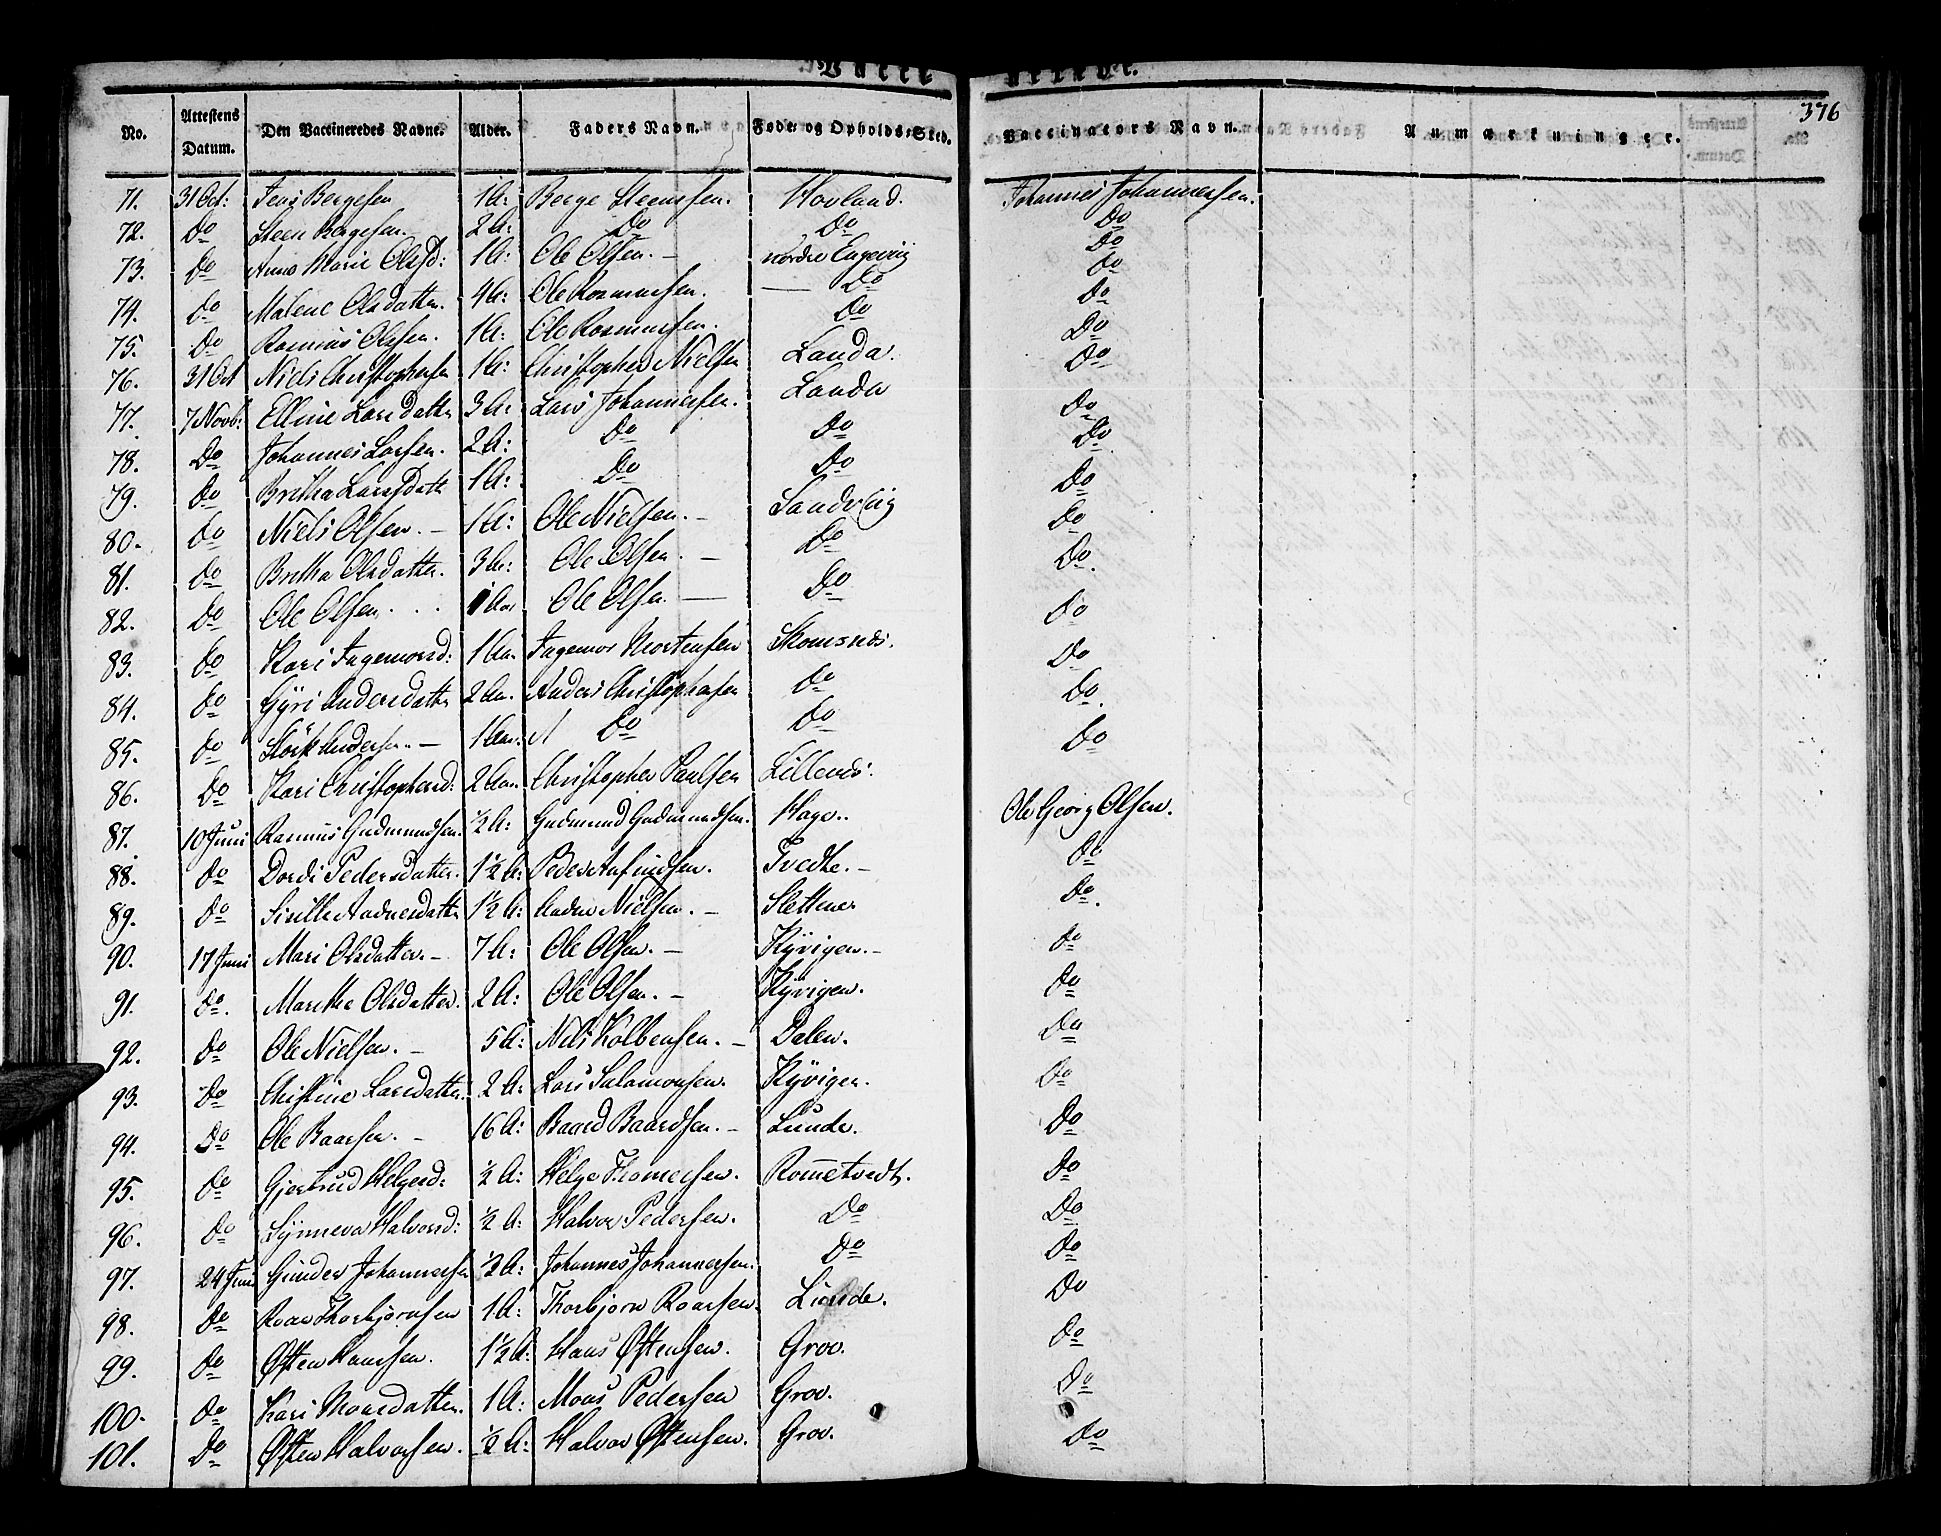 Vacci nerede.
376
No. Attestens Datum. Den Vaccineredes Navne. Alder. Faders Navn. Føde- og Opholds-Sted. Vaccinators Navn. Anmærkninger.
71. 31 Oct: Jens Bergesen 1 A: Berge Steensen. Hovland. Johannes Johannessen.
72. Do Steen Bergesen. 2 A: Do Do Do
73. Do Anne Marie Olsd: 1 A: Ole Olsen. – nordre Engevig Do
74. Do Malene Olsdatter 4 A: Ole Rasmussen. — Do Do
75. Do Rasmus Olsen. 1 A: Ole Rasmussen. Do Do
76. 31 Oct Niels Christophersen 1 A: Christopher Nielsen Landa. Do
77. 7 Novb: Elline Larsdatter 3 A: Lars Johannessen. Landa Do
78. Do Johannes Larsen. 2 A: Do Do Do
79. Do Britha Larsdatt 1 A: Do Do Do
80. Do Niels Olsen. – 1 A: Ole Nielsen. – Sandvig Do
81. Do Britha Olsdatter. 3 A: Ole Olsen. – Do Do
82. Do Ole Olsen. . . 1 Aar Ole Olsen. — Do Do.
83. Do Kari Ingemorsd: 1 Aar Ingemor Mortensen Skomsnæs. Do
84. Do Gÿri Andersdatter 2 Aar. Anders Christophersen Do Do
85. Do Andersen. – 1 Aar. Do Do Do.
86. Do Kari Christophersd: 2 Aar. Christopher Paulsen Lillenæs. Do
87. 10 Juni Rasmus Gudmundsen. ½ A: Gudmund Gudmundsen. Hage.. Ole Georg Olsen.
88. Do Dordi Pedersdatter. 1½ A: Peder Anfindsen. Tvedte. – Do
89. Do Sirille Aadnesdatter 1½ A: Aadne Nielsen. – Slettene Do.
90. 17 Juni Mari Olsdatter. – 7 A: Ole Olsen. – Kÿvigen. – Do
91. Do. Marithe Olsdatter. 2 A: Ole Olsen. – Kÿvigen. Do
92. Do Ole Nielsen. – 5 A: Nils Kolbensen. – Dalen. Do
93. Do Christine Larsdatter. 2 A: Lars Salamonsen. Kÿvigen. Do
94. Do Ole Baarsen. – 16 A: Baard Baardsen. – Lunde. Do
95. Do Gjertrud Helgesd: ½ A: Helge Thomessen. Rometvedt. Do
96. Do Sÿnneva Halvorsd: ½ A: Halvor Pedersen. Do Do
97. 24 Juni Gunder Johannessen ½ A: Johannes Johannessen. Do Do
98. Do Roar Thorbjørnsen 1 A: Thorbjørn Roarsen. Lunde. Do
99. Do Østen Hanssen. 1½ A: Hans Østensen. Grov. Do
100. Do Kari Monsdatter. 1 A: Mons Pedersen Grov. Do
101. Do Østen Halvorsen. ½ A: Halvor Østensen. Grov. Do